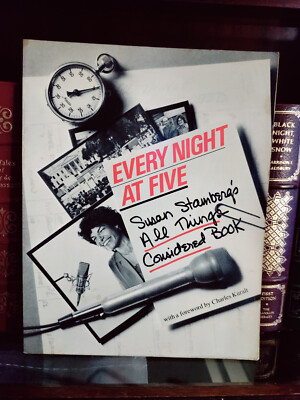 EVERY NIGHT
AT FIVE
Susan Stamberg's
All Things
Considered Book
with a foreword by Charles Kuralt
Tales
of
BLACK
NIGHT,
WHITE
SNOW
HARRISON E.
SALISBURY
FIRST
EDITION